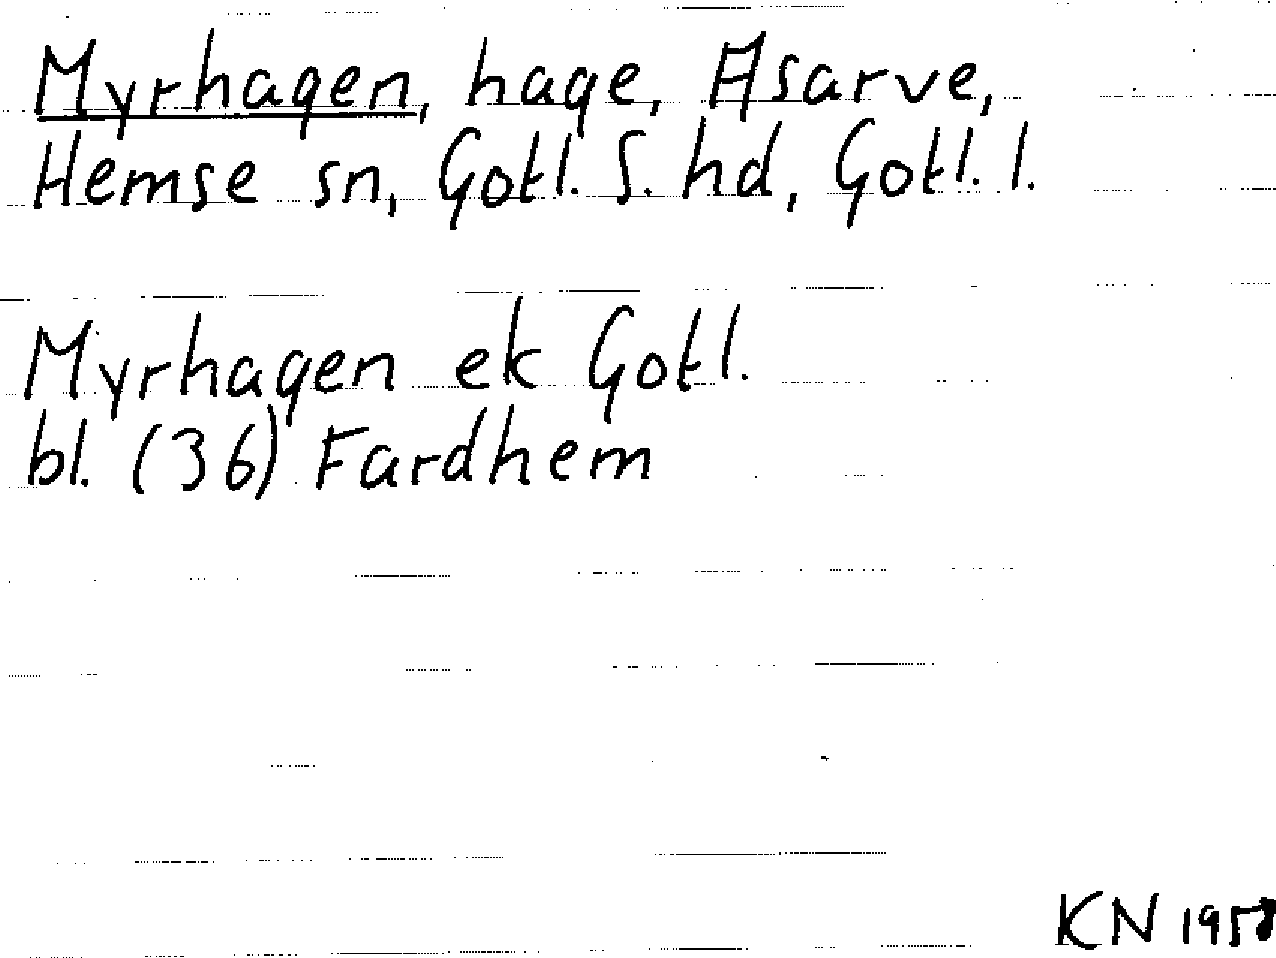 Myrhagen, hage, Asarve,
Hemse sn, Gotl. S. hd, Gotl. l.
Myrhagen ek Gotl.
bl. (36) Fardhem
KN